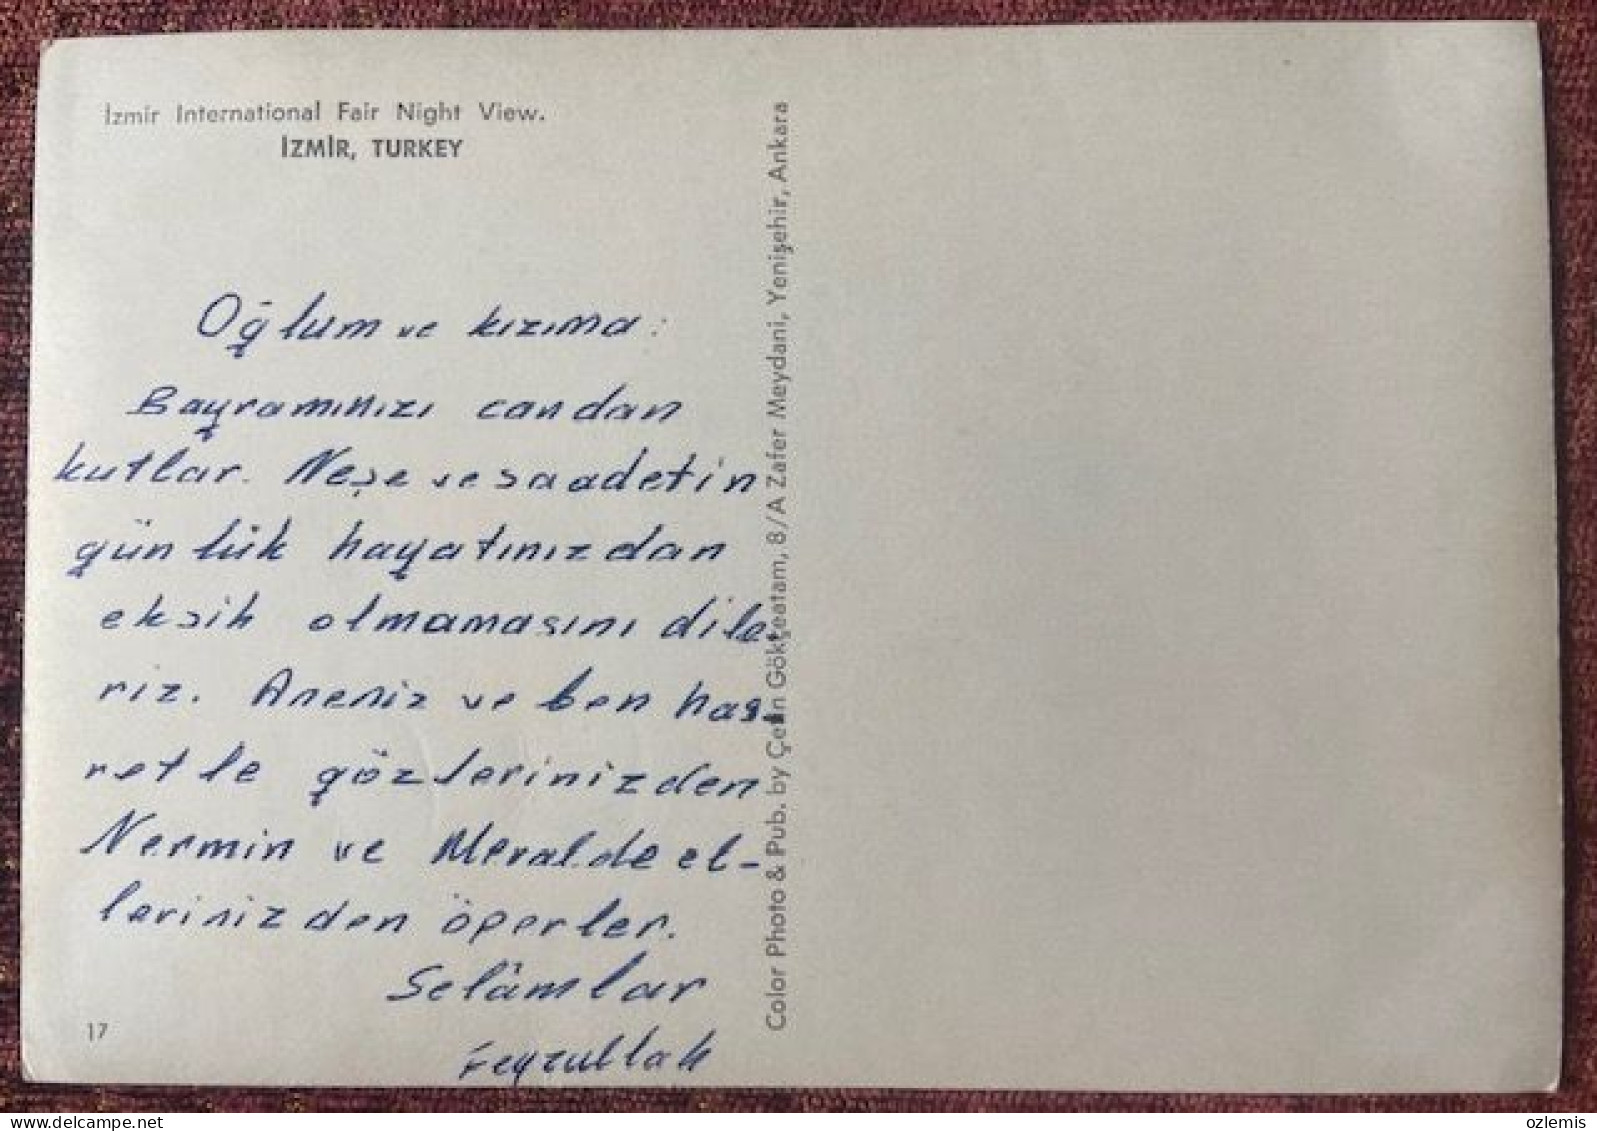 İzmir International Fair Night View.
İZMİR, TURKEY
Oğlum ve kızıma:
Bayramınızı candan
kutlar. Neşe ve saadetin
günlük hayatınızdan
eksik olmamasını dile-
riz. Anneniz ve ben has-
retle gözlerinizden
Nermin ve Meralde el-
lerinizden öperler.
Selâmlar
Feyzullah
17
Color Photo & Pub. by Çetin Gökçeatam, 8/A Zafer Meydani, Yenişehir, Ankara
delcampe.net
ozlemis